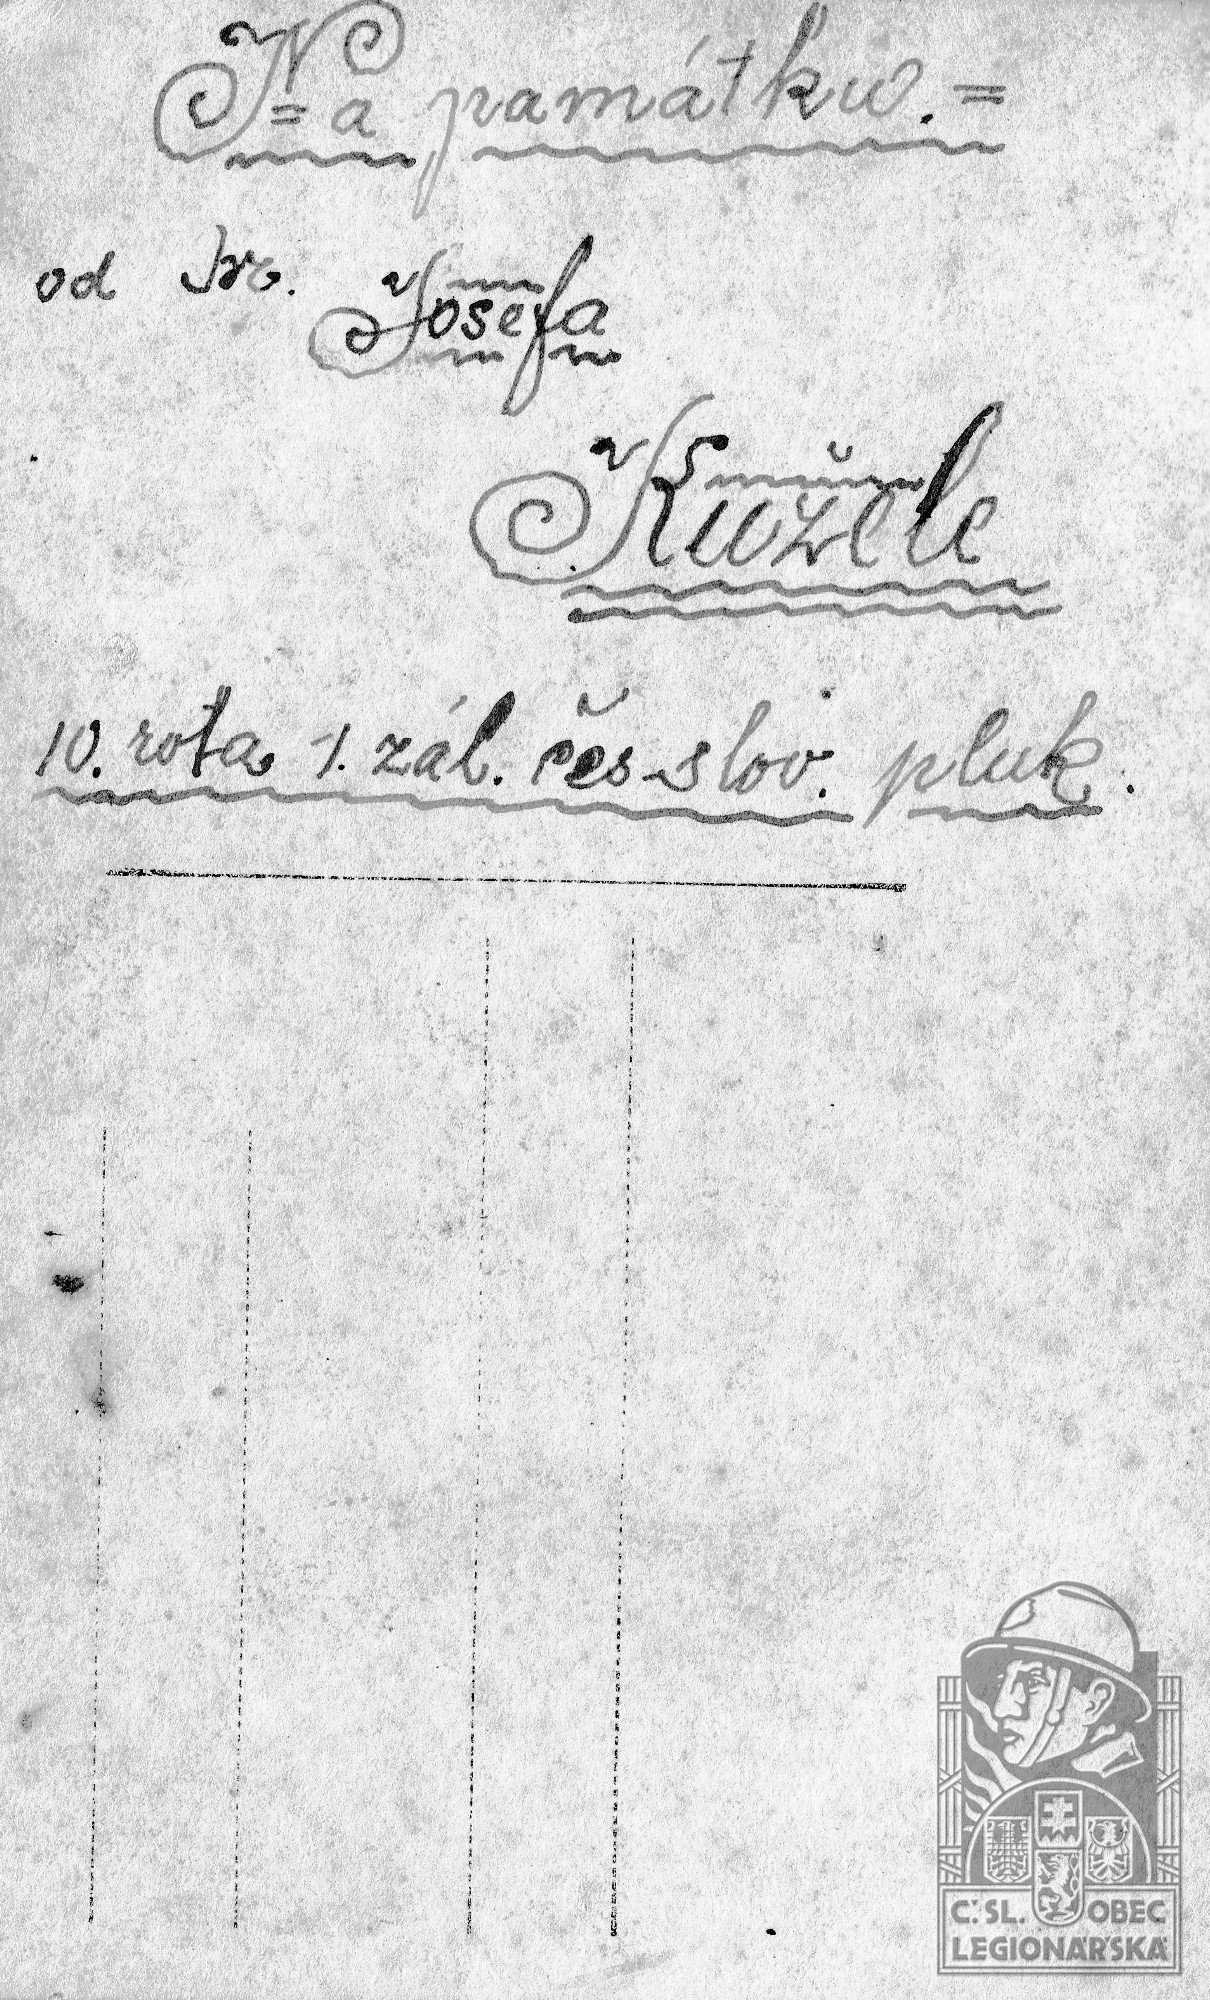 Na památku. =
od br.
Josefa
Kužele
10. rota 1. zál. čes slov. pluk.
Č. SL. OBEC
LEGIONÁŘSKÁ